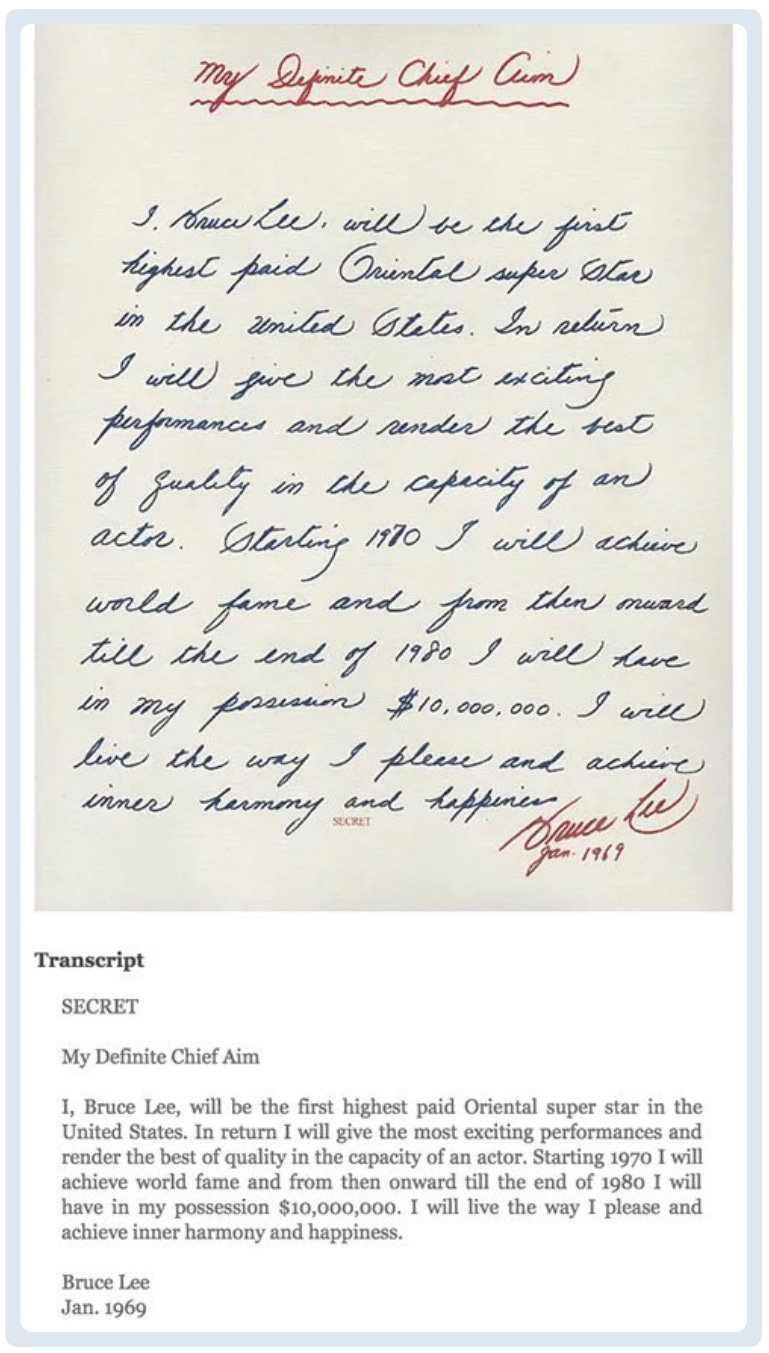 My Definite Chief Aim
I, Bruce Lee, will be the first
highest paid Oriental super Star
in the United States. In return
I will give the most exciting
performances and render the best
of quality in the capacity of an
actor. Starting 1970 I will achieve
world fame and from then onward
till the end of 1980 I will have
in my possession $10,000,000. I will
live the way I please and achieve
inner harmony and happiness
SECRET
Bruce Lee
Jan. 1969
Transcript
SECRET
My Definite Chief Aim
I, Bruce Lee, will be the first highest paid Oriental super star in the
United States. In return I will give the most exciting performances and
render the best of quality in the capacity of an actor. Starting 1970 I will
achieve world fame and from then onward till the end of 1980 I will
have in my possession $10,000,000. I will live the way I please and
achieve inner harmony and happiness.
Bruce Lee
Jan. 1969